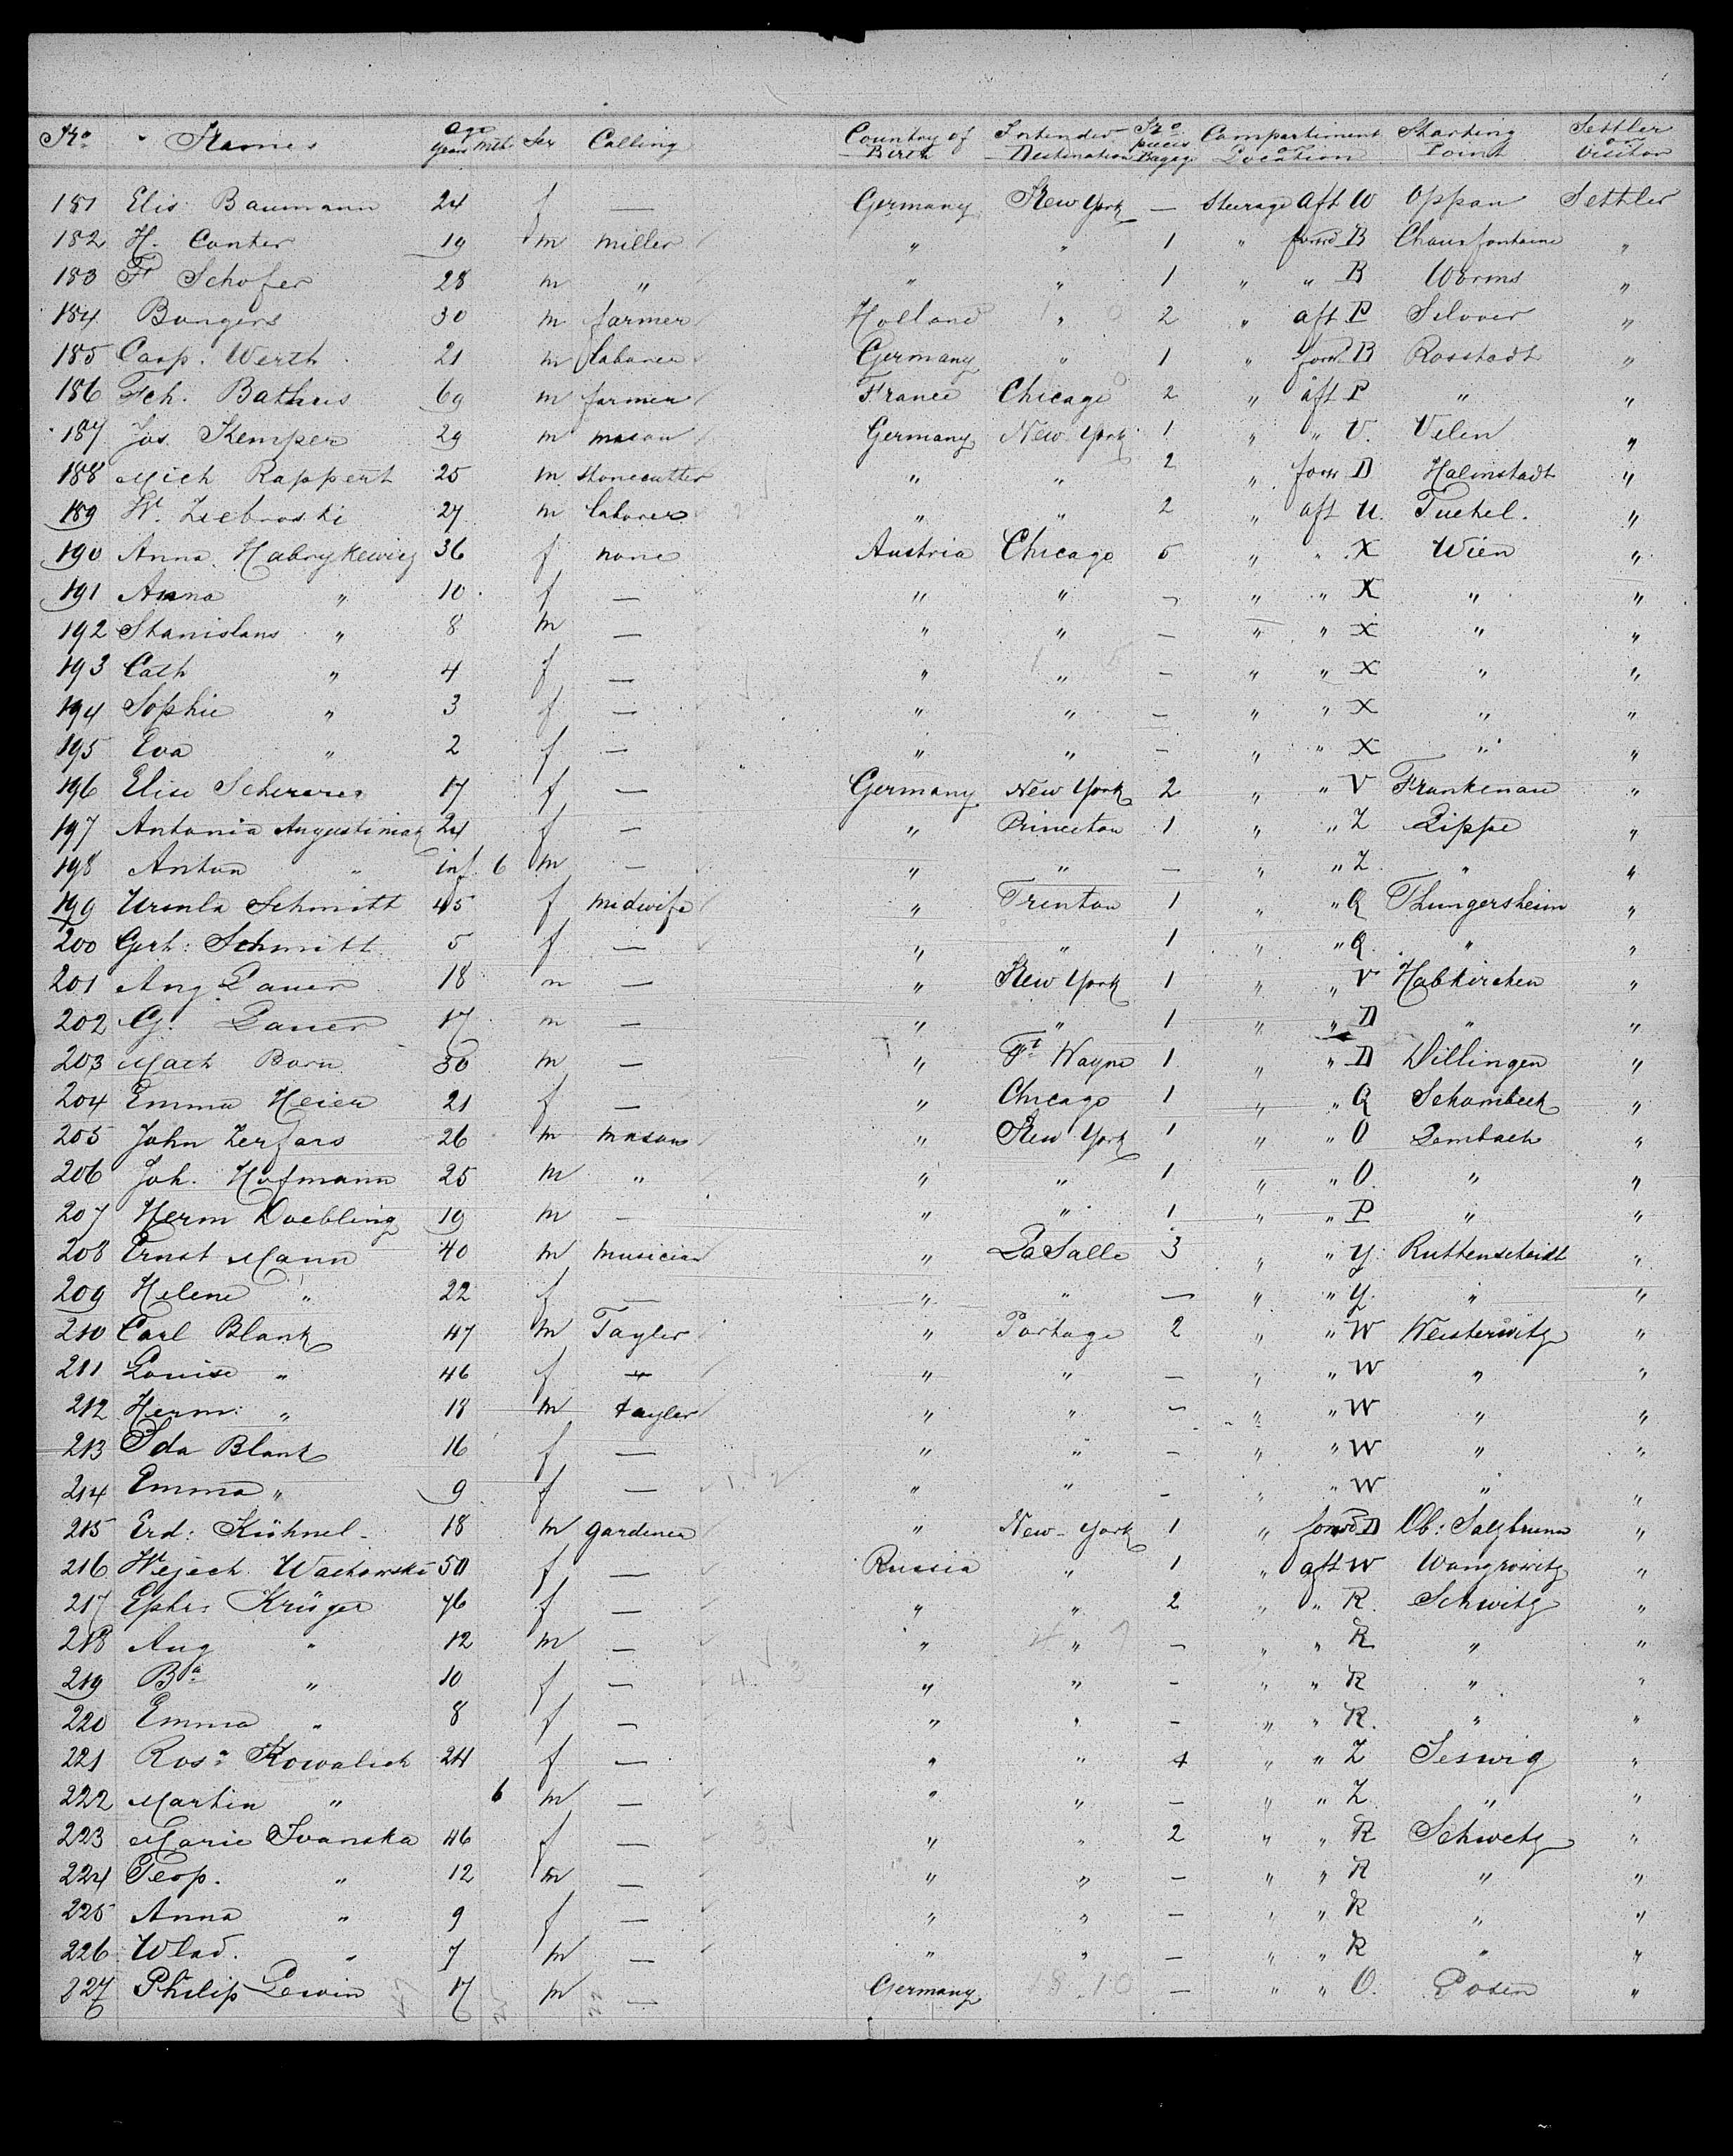 No. Names Age Years Mth. Sex Calling Country of Birth Intended Destination No. pieces Bagage Compartiment or Location Starting Point Settler or Visitor
181 Elis Baumann 24 f — Germany New York — Steerage aft W Oppau Settler
182 H. Conter 19 m miller " " 1 " forwd B Chausfontaine "
183 F Schofer 28 m " " " 1 " " B Worms "
184 Bongers 30 m farmer Holland " 2 " aft P "
185 Casp. Werth 21 m laborer Germany " 1 " forw B Rosstadt "
186 Fch. Bathis 69 m farmer France Chicago 2 " aft P " "
187 Jos. Kemper 29 m mason Germany New York 1 " " V. Velen "
188 Mich Rappert 25 m stonecutter " " 2 " forw D Halmstadt "
189 W. Ziebroski 27 m laborer " " 2 " aft U. Tuchel. "
190 Anna Habrykewicz 36 f none Austria Chicago 5 " " X Wien "
191 Anna " 10 f — " " — " " X " "
192 Stanislaus " 8 m — " " — " " X " "
193 Cath " 4 f — " " — " " X " "
194 Sophie " 3 f — " " — " " X " "
195 Eva " 2 f — " " — " " X " "
196 Elise Scherrer 17 f — Germany New York 2 " " V Frankenau "
197 Antonia Augustiniak 24 f — " Princeton 1 " " Z Lippe "
198 Anton " inf 6 m — " " — " " Z " "
199 Ursula Schmitt 45 f midwife " Trenton 1 " " Q Thungersheim "
200 Gert: Schmitt 5 f — " " 1 " " Q " "
201 Aug Lauer 18 m — " New York 1 " " V Habkirchen "
202 G. Lauer 17 m — " " 1 " " D " "
203 Math Born 30 m — " Ft Wayne 1 " " D Dillingen "
204 Emma Heier 21 f — " Chicago 1 " " Q Schombeck "
205 John Zerfass 26 m mason " New York 1 " " O Lembach "
206 Joh. Hofmann 25 m " " " 1 " " O. " "
207 Herm Doebling 19 m — " " 1 " " P " "
208 Ernst Mann 40 m musician " La Salle 3 " " Y Ruttenscheidt "
209 Helene " 22 f — " " — " " Y " "
210 Carl Blank 47 m Tayler " Portage 2 " " W Weisterwitz "
211 Louise " 46 f — " " — " " W " "
212 Herm: " 18 m tayler " " — " " W " "
213 Ida Blank 16 f — " " — " " W " "
214 Emma " 9 f — " " — " " W " "
215 Erd: Kühnel 18 m gardener " New-York 1 " forwd D Ob: Salzbrunn "
216 Wejech Wachowski 50 f — Russia " 1 " aft W Wongrowitz "
217 Ephr: Krüger 46 f — " " 2 " " R. Schwitz "
218 Aug " 12 m — " " — " " R " "
219 Ba " 10 f — " " — " " R " "
220 Emma " 8 f — " " — " " R. " "
221 Rosa Kowalick 24 f — " " 4 " " Z Seswig "
222 Martin " 6 m — " " — " " Z " "
223 Marie Ivanska 46 f — " " 2 " " R Schwetz "
224 Teop. " 12 m — " " — " " R " "
225 Anna " 9 f — " " — " " R " "
226 Wlad. " 7 m — " " — " " R " "
227 Philip Lewin 17 m — Germany — " " O. Posen "